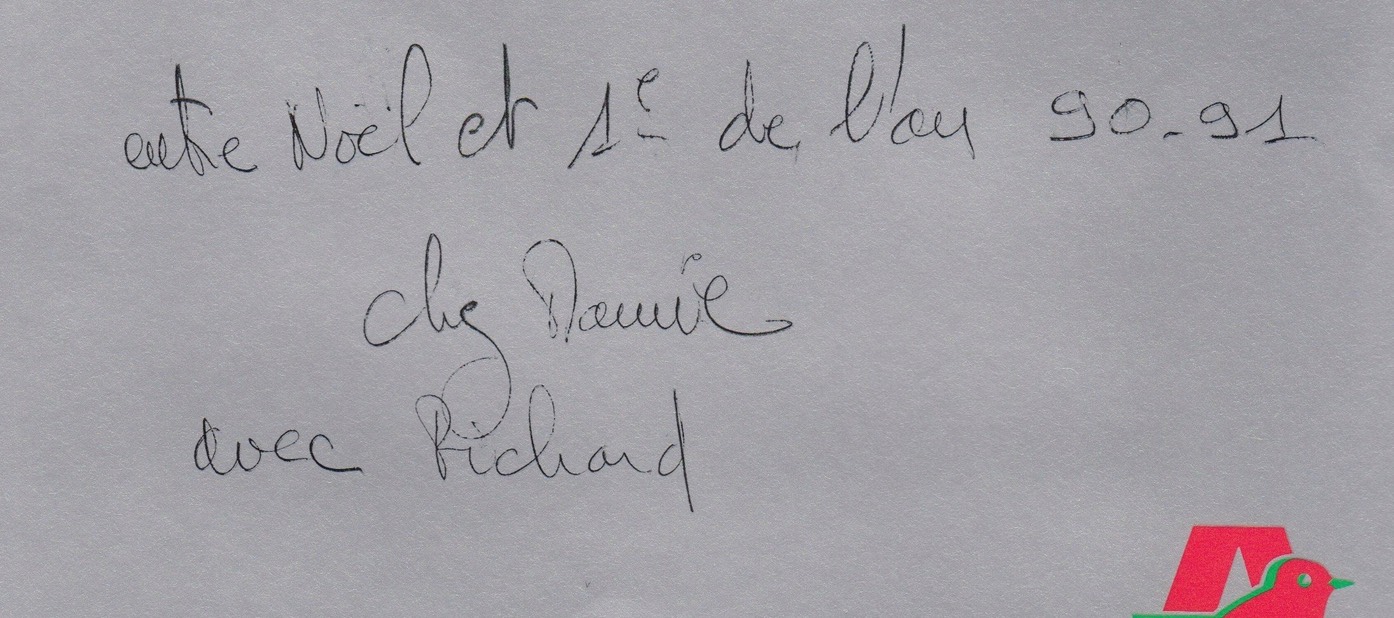 entre Noël et 1e de l'an 90-91
chez Dannie
avec Richard